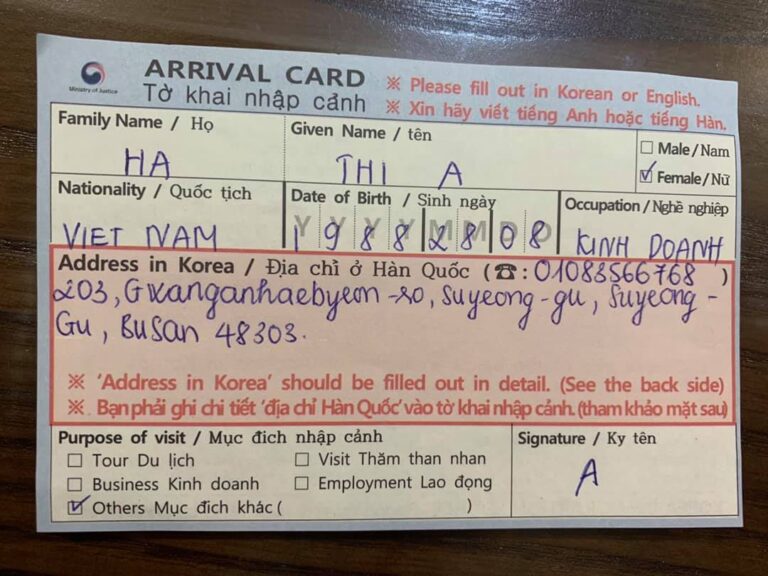 Ministry of Justice
ARRIVAL CARD
Tờ khai nhập cảnh
※ Please fill out in Korean or English.
※ Xin hãy viết tiếng Anh hoặc tiếng Hàn.
Family Name / Họ
HA
Given Name / tên
THI A
Male / Nam
Female / Nữ
Nationality / Quốc tịch
VIET NAM
Date of Birth / Sinh ngày
YYYYMMDD
19882808
Occupation / Nghề nghiệp
KINH DOANH
Address in Korea / Địa chỉ ở Hàn Quốc (☎: 01083566768 )
203, Gwanganhaebyeon-ro, Suyeong-gu, Suyeong-
Gu, Busan 48303.
※ 'Address in Korea' should be filled out in detail. (See the back side)
※ Bạn phải ghi chi tiết 'địa chỉ Hàn Quốc' vào tờ khai nhập cảnh. (tham khảo mặt sau)
Purpose of visit / Mục đích nhập cảnh
Tour Du lịch
Visit Thăm than nhan
Business Kinh doanh
Employment Lao động
Others Mục đích khác ( )
Signature / Ky tên
A